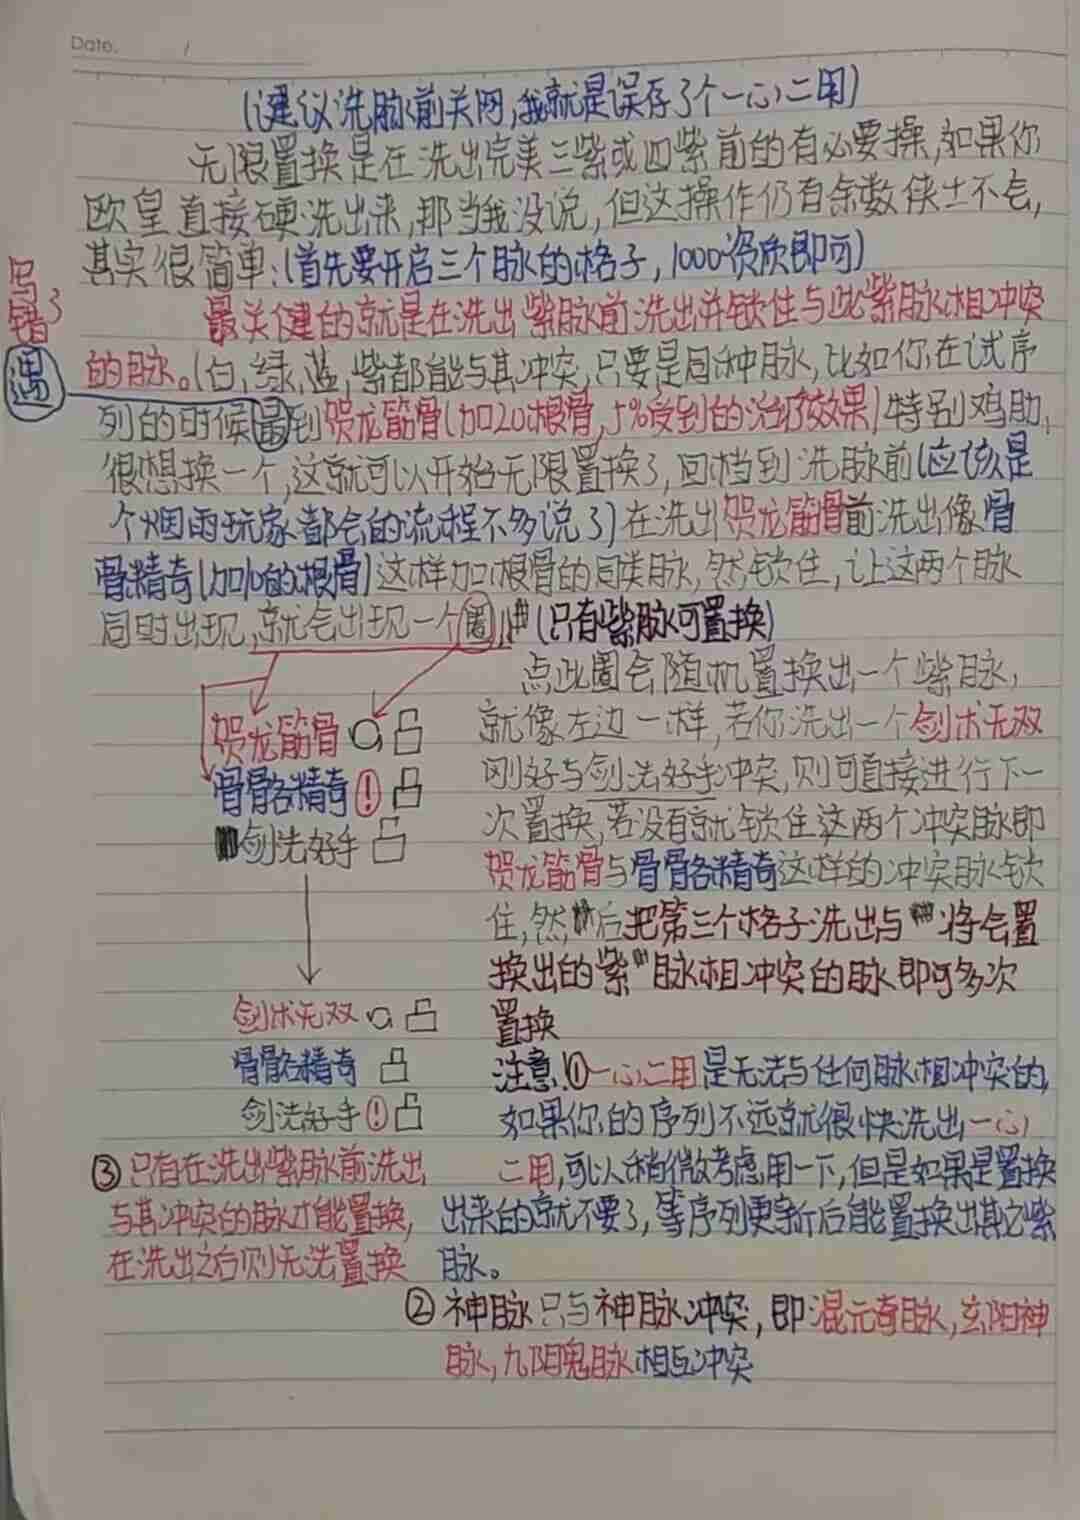 Date. /
(建议洗脉前关网,我就是误存了个一心二用)
无限置换是在洗出完美三紫或四紫前的有必要操,如果你
欧皇直接硬洗出来,那当我没说,但这操作仍有余数侠士不会,
其实很简单:(首先要开启三个脉的格子,1000资质即可)
写错了
遇
最关健的就是在洗出紫脉前洗出并锁住与此紫脉相冲突
的脉。(白,绿,蓝,紫都能与其冲突,只要是同种脉,比如你在试序
列的时候到贺龙筋骨(加20根骨,5%受到的治疗效果)特别鸡肋,
很想换一个,这就可以开始无限置换了,回档到洗脉前(应该是
个烟雨玩家都会的流程不多说了)在洗出贺龙筋骨前洗出像骨
骼精奇(加10的根骨)这样加根骨的同类脉,然锁住,让这两个脉
同时出现,就会出现一个圈,(只有紫脉可置换)
点此圈会随机置换出一个紫脉,
就像左边一样,若你洗出一个剑术无双
刚好与剑法好手冲突,则可直接进行下一
次置换,若没有就锁住这两个冲突脉即
贺龙筋骨与骨骼精奇这样的冲突脉锁
住,然后把第三个格子洗出与将会置
换出的紫脉相冲突的脉即可多次
置换
贺龙筋骨
骨骼精奇!
剑法好手
剑术无双
骨骼精奇
剑法好手!
注意!①一心二用是无法与任何脉相冲突的,
如果你的序列不远就很快洗出一心
二用,可以稍微考虑用一下,但是如果是置换
出来的就不要了,等序列更新后能置换出其它紫
脉。
③只有在洗出紫脉前洗出
与其冲突的脉才能置换,
在洗出之后则无法置换
②神脉只与神脉冲突,即混元奇脉,玄阳神
脉,九阴鬼脉相互冲突